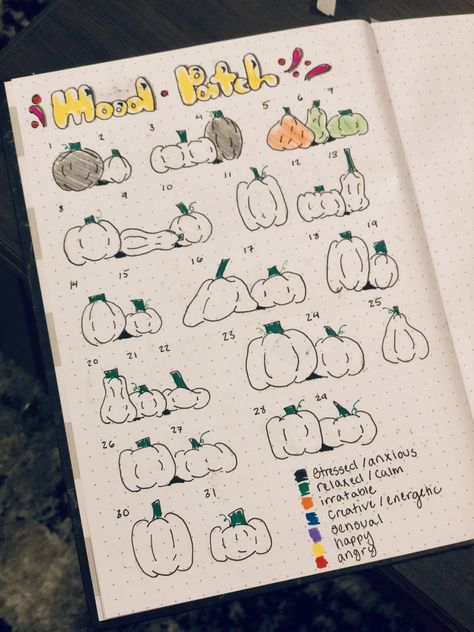 Mood · Patch
1 2 3 4 5 6 7
8 9 10 11 12 13
14 15 16 17 18 19
20 21 22 23 24 25
26 27 28 29
30 31
stressed / anxious
relaxed / calm
irratable
creative / energetic
sensual
happy
angry